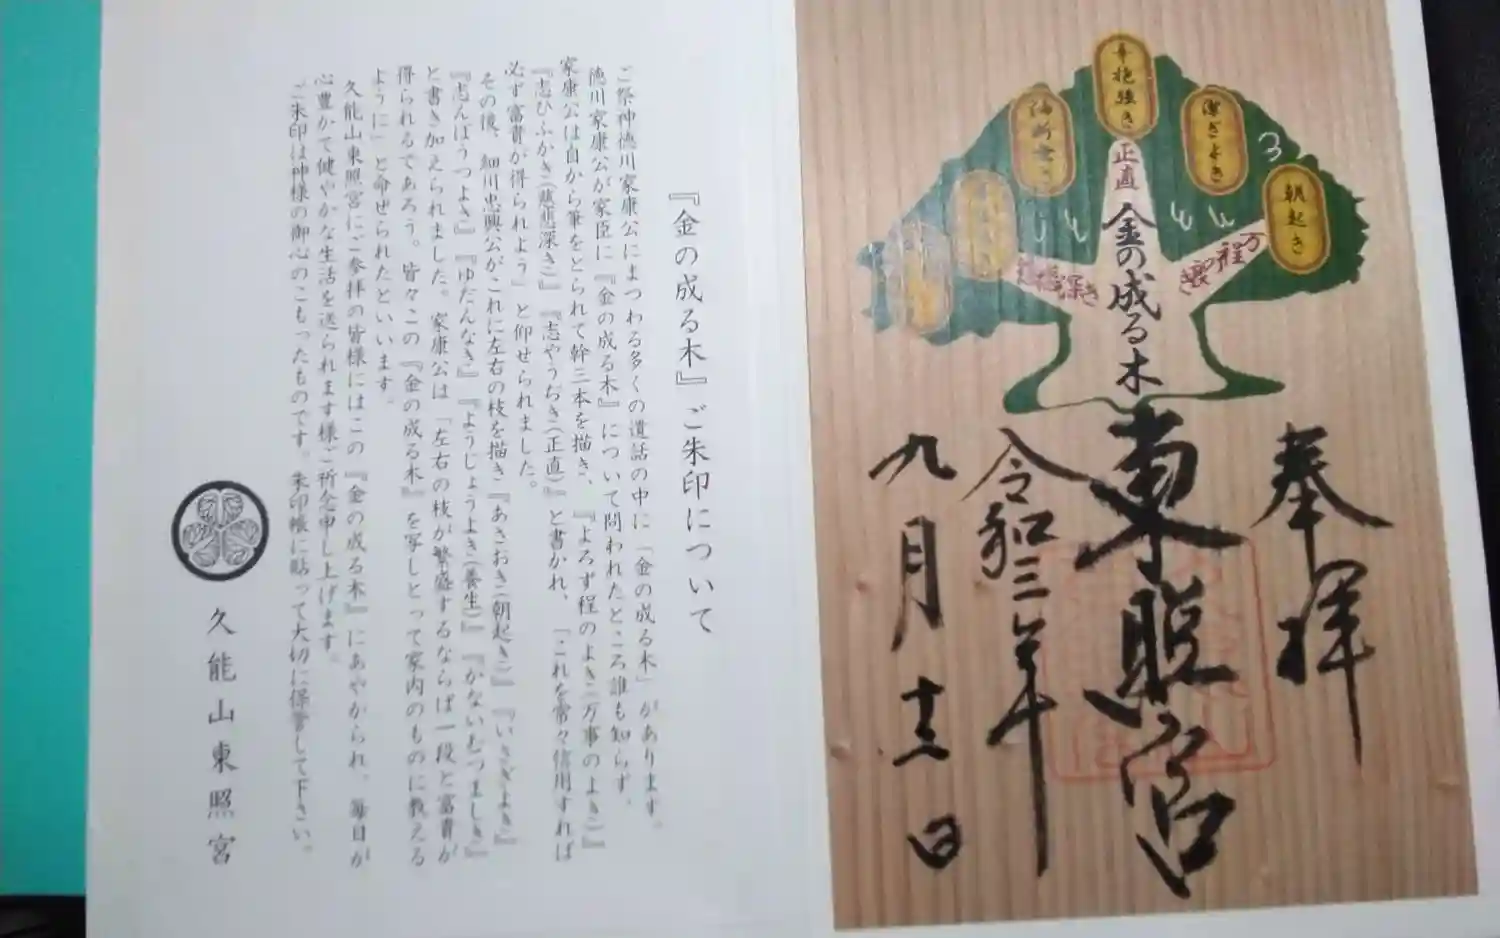 奉拝
東照宮
令和三年
九月十三日
金の成る木
正直
万程
慈悲深き
朝起き
潔ぎよき
辛抱強き
油断
『金の成る木』ご朱印について
ご祭神徳川家康公にまつわる多くの遺話の中に「金の成る木」があります。
徳川家康公が家臣に『金の成る木』について問われたところ誰も知らず、
家康公は自から筆をとられて幹三本を描き、『よろず程のよき(万事のよき)』
『志ひふかき(慈悲深き)』『志やうぢき(正直)』と書かれ、「これを常々信用すれば
必ず富貴が得られよう」と仰せられました。
その後、細川忠興公がこれに左右の枝を描き『あさおき(朝起き)』『いさぎよき』
『志んぼうつよき』『ゆだんなき』『ようじょうよき(養生)』『かないむつましき』
と書き加えられました。家康公は「左右の枝が繁盛するならば一段と富貴が
得られるであろう。皆々この『金の成る木』を写しとって家内のものに教える
ように」と命ぜられたといいます。
久能山東照宮にご参拝の皆様にはこの『金の成る木』にあやかられ、毎日が
心豊かで健やかな生活を送られます様ご祈念申し上げます。
ご朱印は神様の御心のこもったものです。朱印帳に貼って大切に保管して下さい。
久能山東照宮